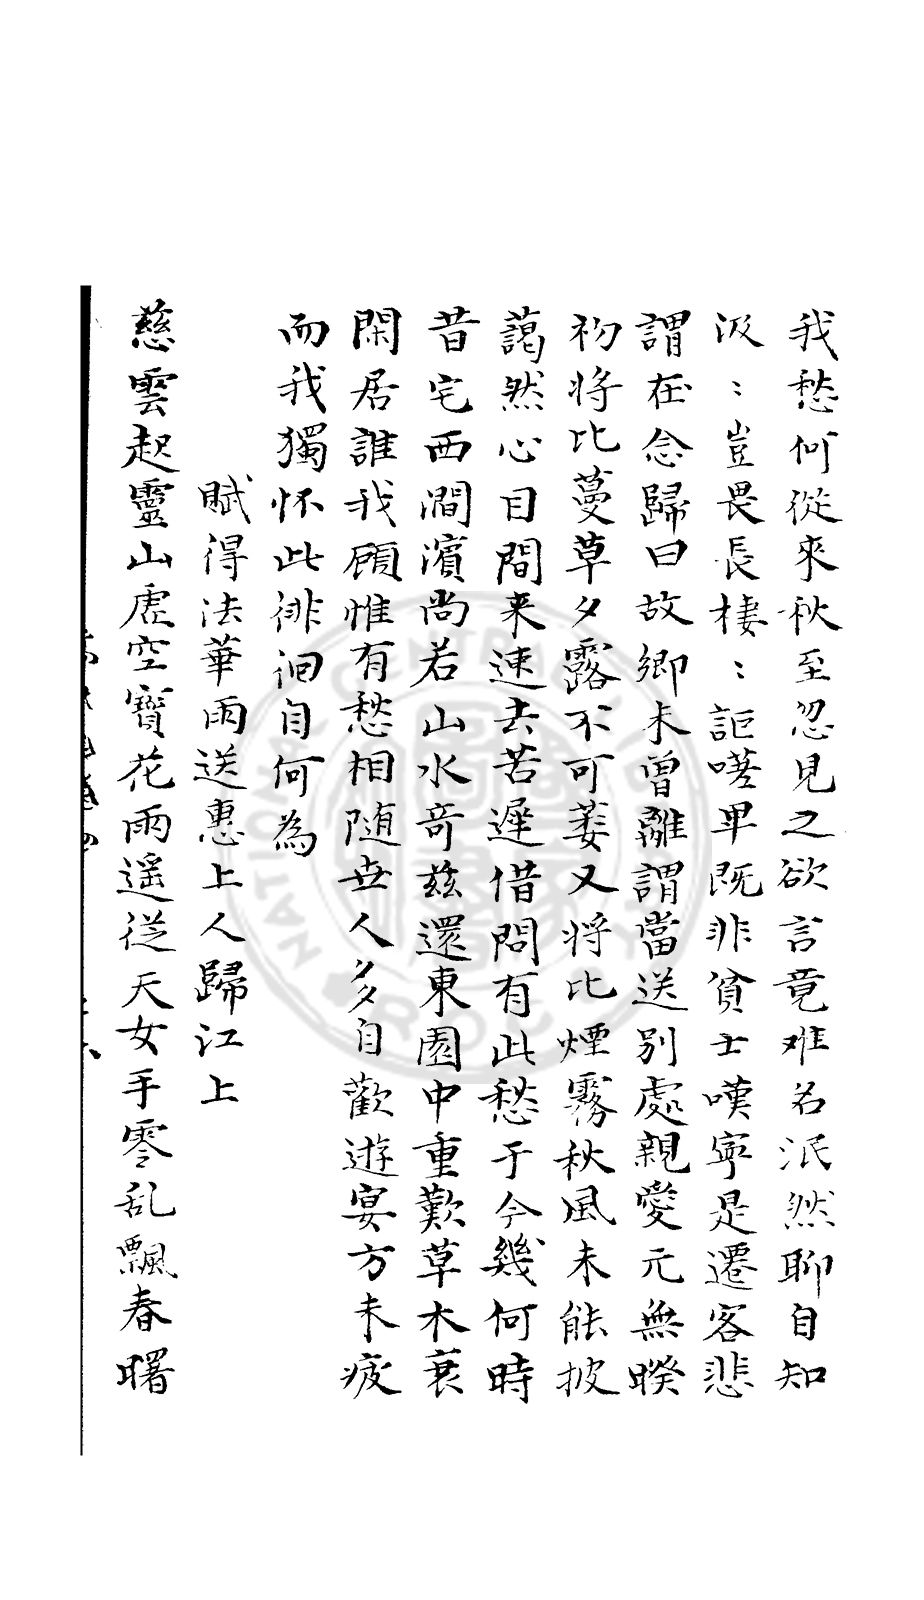 我愁何從來秋至忽見之欲言竟难名泯然聊自知
汲〻豈畏長棲〻詎嗟卑既非貧士嘆寧是遷客悲
謂在念歸日故鄉未曾離謂當送別處親愛元無暌
初將比蔓草夕露不可萎又將比煙霧秋風未能披
藹然心目間来速去苦遲借問有此愁于今幾何時
昔宅西澗濱尚若山水竒茲還東園中重歎草木衰
閑居誰我顧惟有愁相随世人多自歡遊宴方未疲
而我獨怀此徘徊自何為
賦得法華雨送惠上人歸江上
慈雲起靈山虚空寳花雨遥從天女手零乱飄春曙
NATIONAL CENTRAL LIBRARY R.O.C